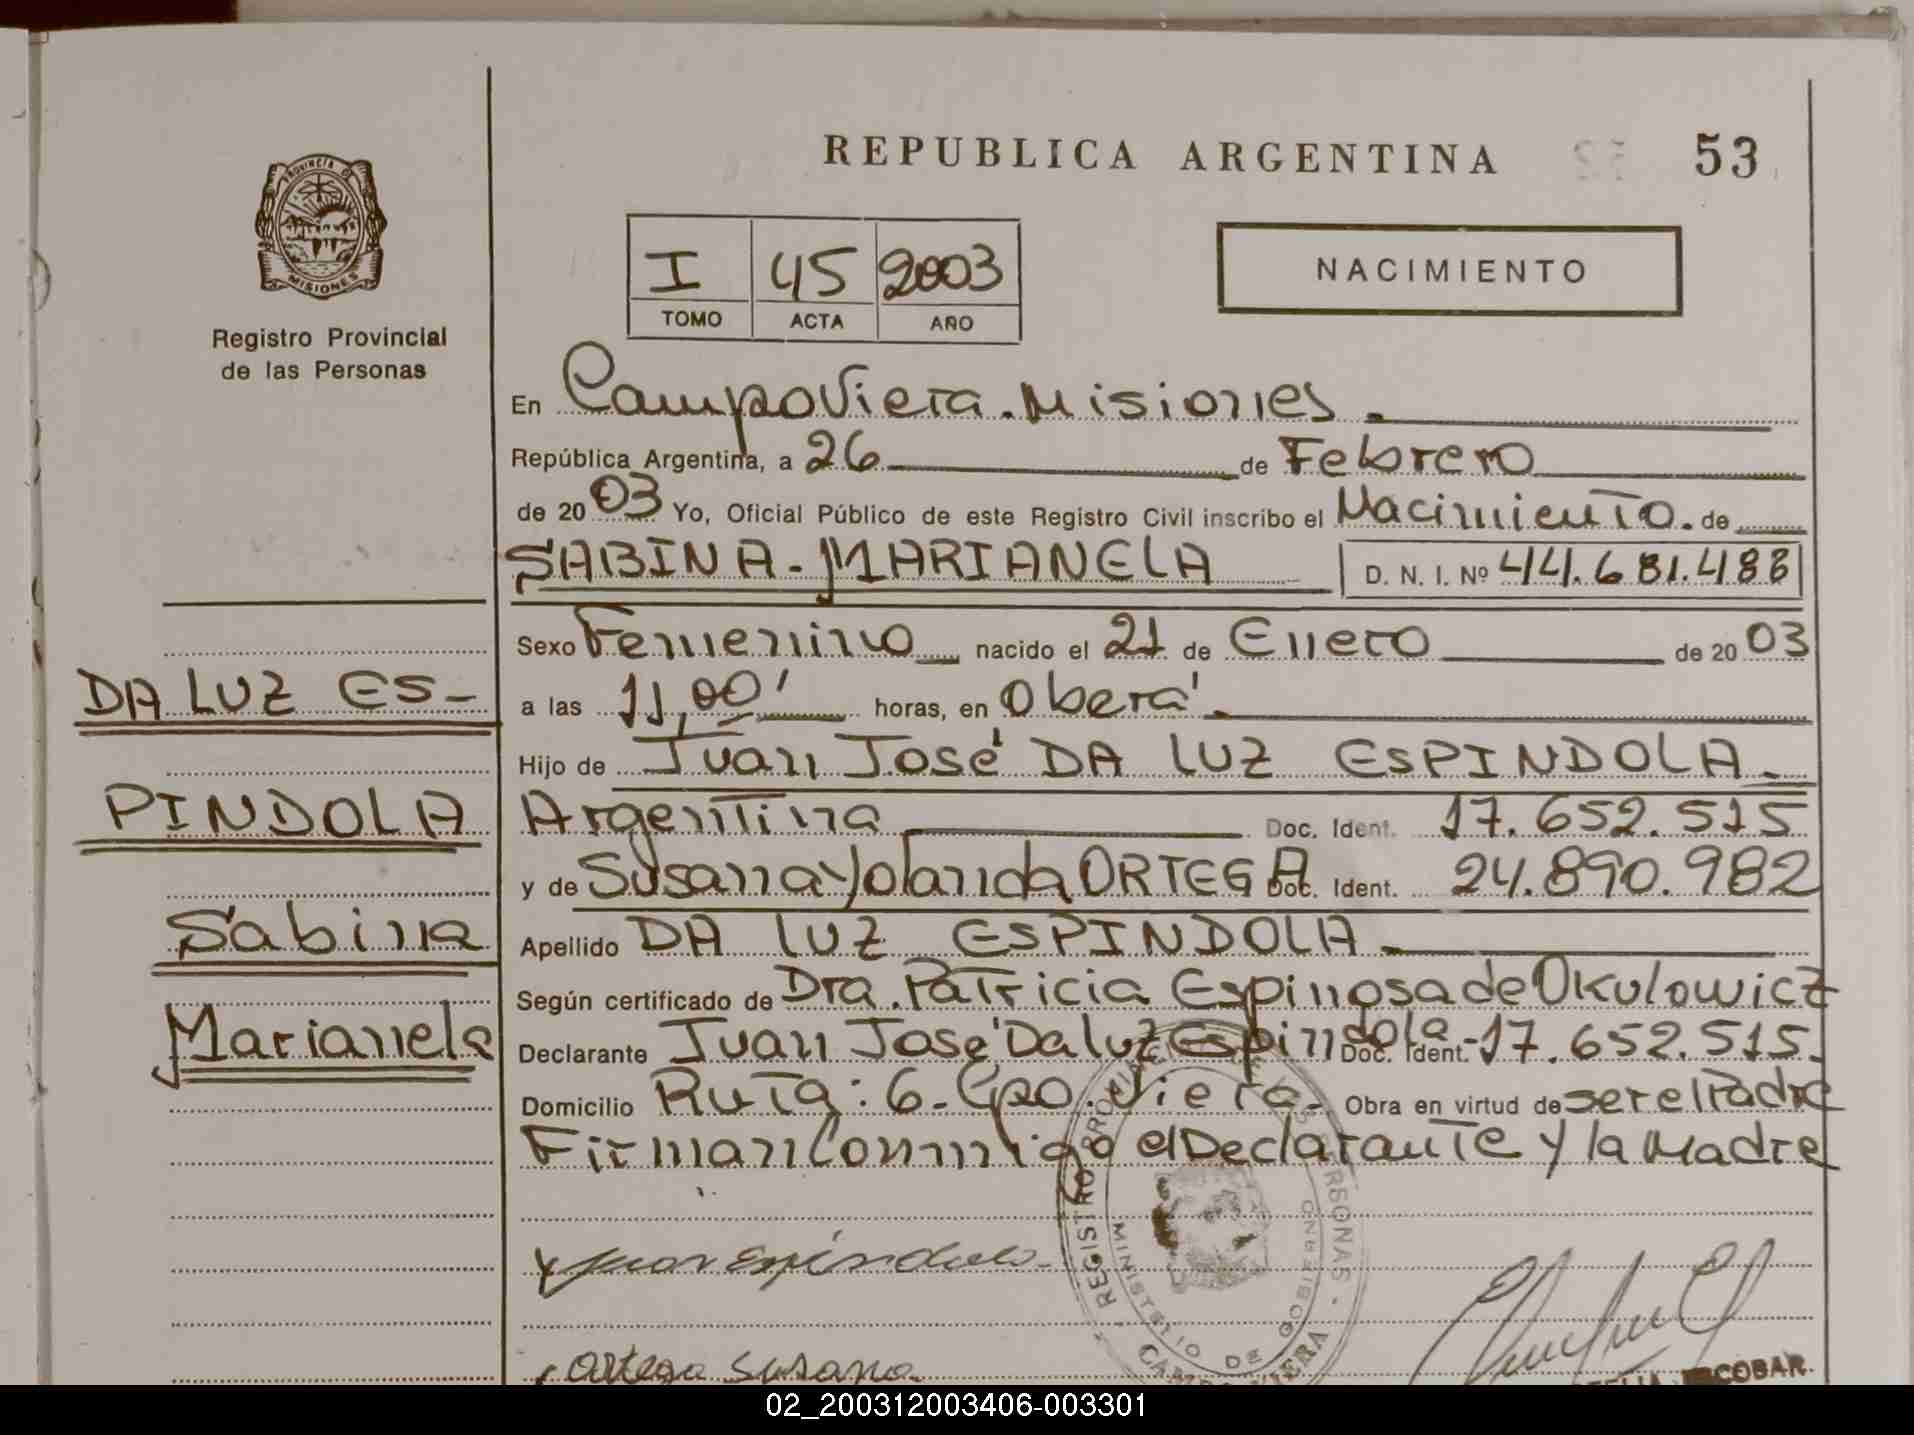 REPUBLICA ARGENTINA
53
PROVINCIA DE
MISIONES
Registro Provincial
de las Personas
I 45 2003
TOMO ACTA AÑO
NACIMIENTO
En Campo Viera. Misiones.
República Argentina, a 26 de Febrero
de 2003 Yo, Oficial Público de este Registro Civil inscribo el Nacimiento. de
SABINA - MARIANELA D. N. I. Nº 44.681.488
Sexo Femenino nacido el 21 de Enero de 2003
a las 11,00' horas, en Oberá.
Hijo de Juan José DA LUZ ESPINDOLA.
Argentina Doc. Ident. 17.652.515
y de Susana Yolanda ORTEGA Doc. Ident. 24.890.982
Apellido DA LUZ ESPINDOLA.
Según certificado de Dra. Patricia Espinosa de Okulowicz
Declarante Juan José Da luz Espindola- Doc. Ident. 17.652.515.
Domicilio Ruta: 6. Cpo. Viera. Obra en virtud de ser el Padre
Firman Conmigo el Declarante y la Madre
DA LUZ ES-
PINDOLA
Sabina
Marianela
Juan Espindola
Ortega Susana
REGISTRO PROVINCIAL DE LAS PERSONAS
MINISTERIO DE GOBIERNO
CAMPO VIERA
ESCOBAR
02_200312003406-003301